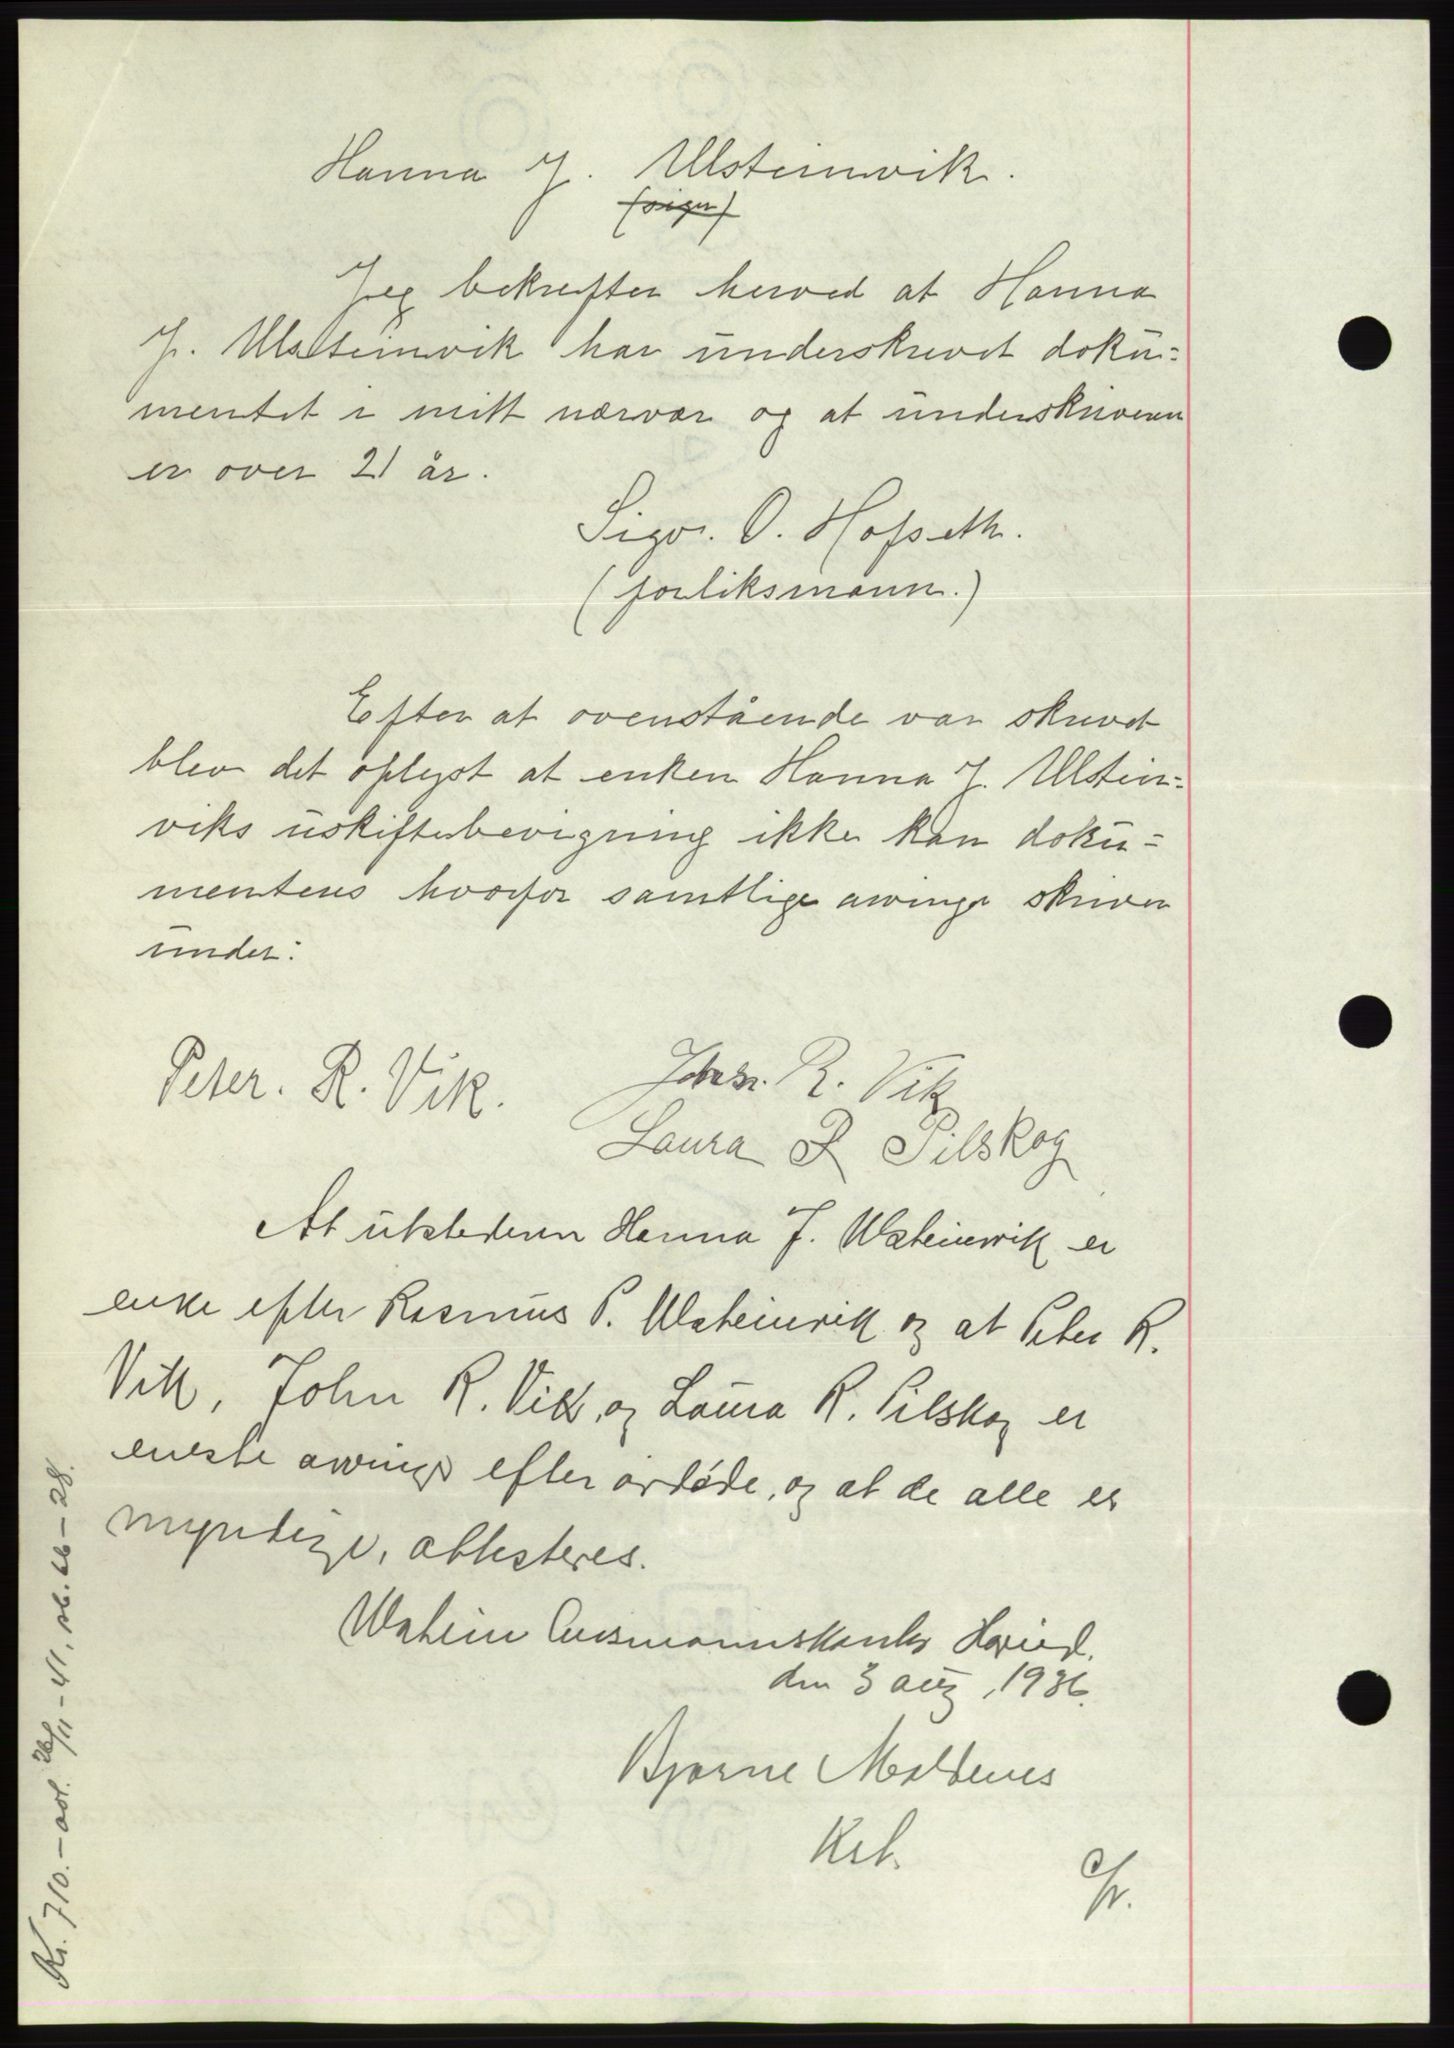 Hanna J. Ulsteinvik.
(eiger)
Jeg bekrefter herved at Hanna
J. Ulsteinvik har underskrevet doku=
mentet i mitt nærvær og at underskriveren
er over 21 år.
Sigv. O. Hofseth.
(forliksmann.)
Efter at ovenstående var skrevet
blev det oplyst at enken Hanna J. Ulstein=
viks uskiftebevigning ikke kan doku=
menteres hvorfor samtlige arvinger skriver
under:
Peter. R. Vik.
Johan. R. Vik
Laura R Pilskog
At utstederen Hanna J. Ulsteinvik er
enke efter Rasmus P. Ulsteinvik og at Peter R.
Vik, John R. Vik, og Laura R. Pilskog er
eneste arvinger efter avdøde, og at de alle er
myndige, attesteres.
Ulstein Lensmannskontor Hareid.
den 3 aug, 1936.
Bjarne Moldenes
Kst.
Kr. 710.- avl. 26/11-41, sb. 26-28.